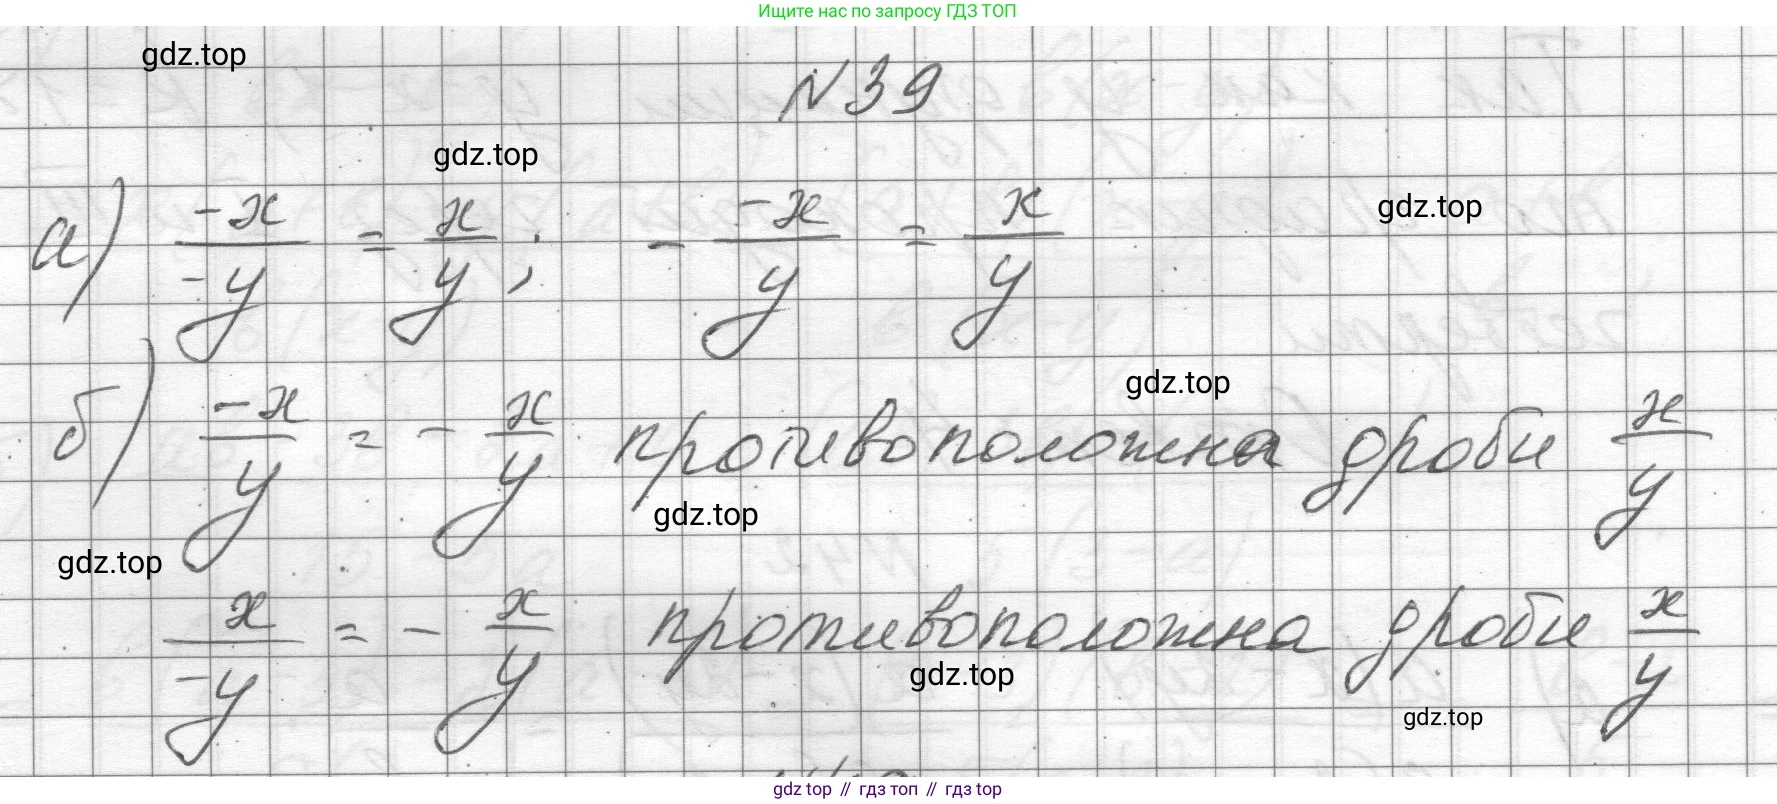 Ищите нас по запросу ГДЗ ТОП
gdz.top
N39
gdz.top
gdz.top
а) -x/-y = x/y; - -x/y = x/y
gdz.top
б) -x/y = - x/y противоположна дроби x/y
gdz.top
gdz.top
x/-y = - x/y противоположна дроби x/y
gdz.top
gdz.top
gdz top // гдз топ // гдз top